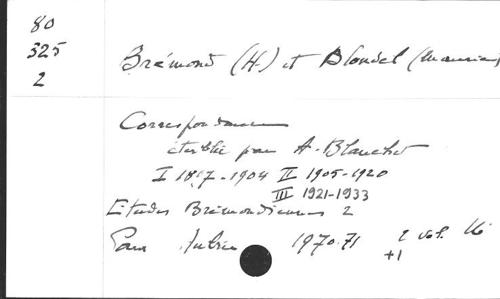 80
325
2
Brémond (H.) et Blondel (Maurice)
Correspondance
établie par A. Blanchet
I 1897-1904 II 1905-1920
III 1921-1933
Etudes Bremondiennes 2
Paris Aubier 1970-71 2 vol.
+1